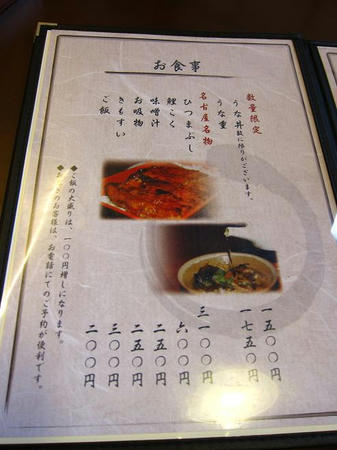 お食事
数量限定
うな丼 数に限りがございます。 一五〇〇円
うな重 一七五〇円
名古屋名物
ひつまぶし 三一〇〇円
鯉こく 六〇〇円
味噌汁 二五〇円
お吸物 二五〇円
きもすい 三〇〇円
ご飯 二〇〇円
◆ご飯の大盛りは、一〇〇円増しになります。
◆お急ぎのお客様は、お電話にてのご予約が便利です。